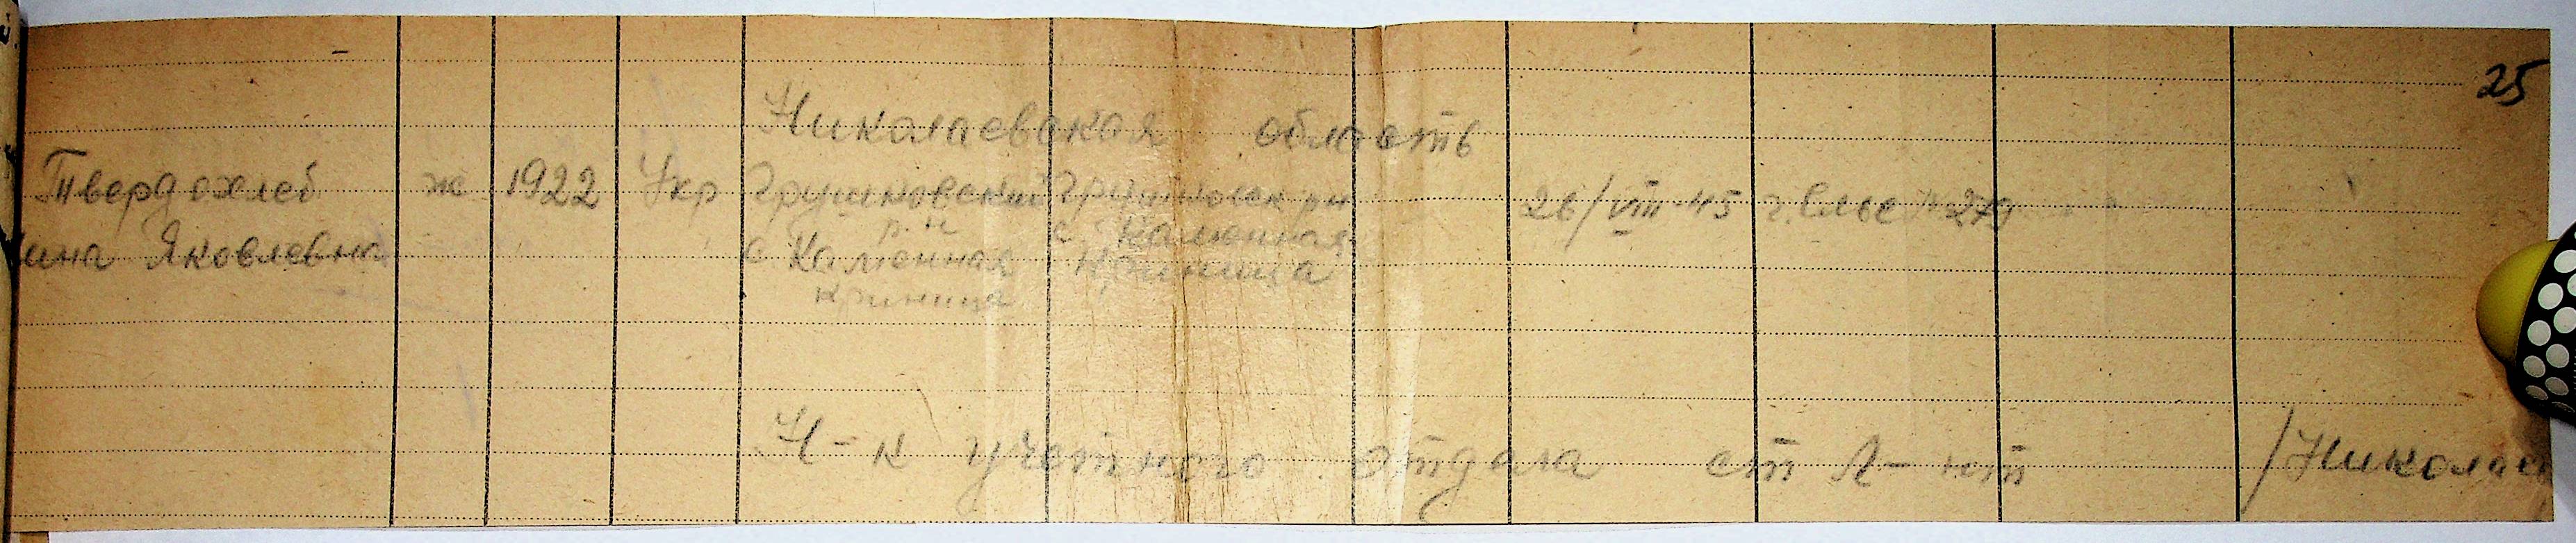 25
Николаевская область
Твердохлеб ж 1922 Укр Грушковский Грушковск рн 26/VIII-45 г. Ельс № 279
р-н с Каменная
ина Яковлевна с Каменная Криница
криница
Н-к учетного отдела ст Л-нт /Николаев